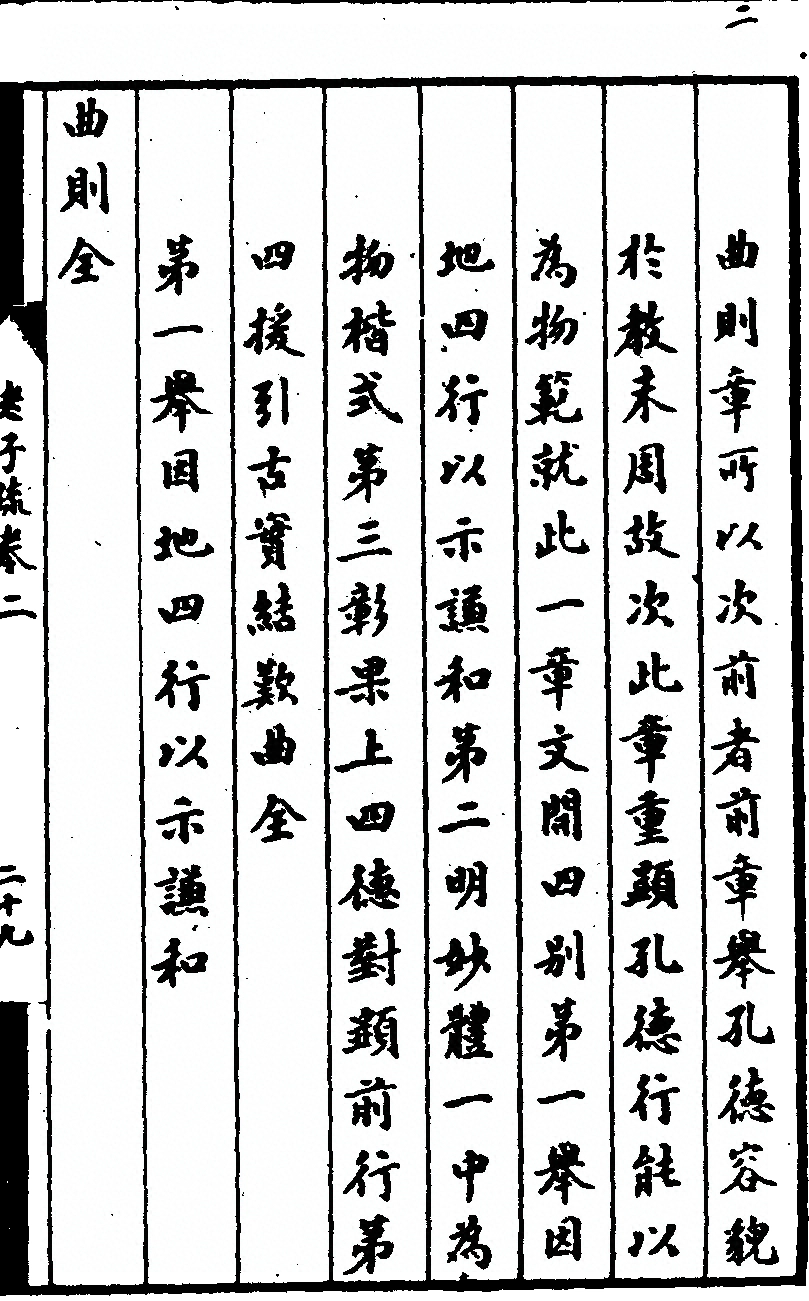 二
曲則章所以次前者前章舉孔德容貌
於教未周故次此章重顯孔德行能以
為物範就此一章文開四別第一舉因
地四行以示謙和第二明妙體一中為
物楷式第三彰果上四德對顯前行第
四援引古實結歎曲全
第一舉因地四行以示謙和
曲則全
老子疏卷二
二十九